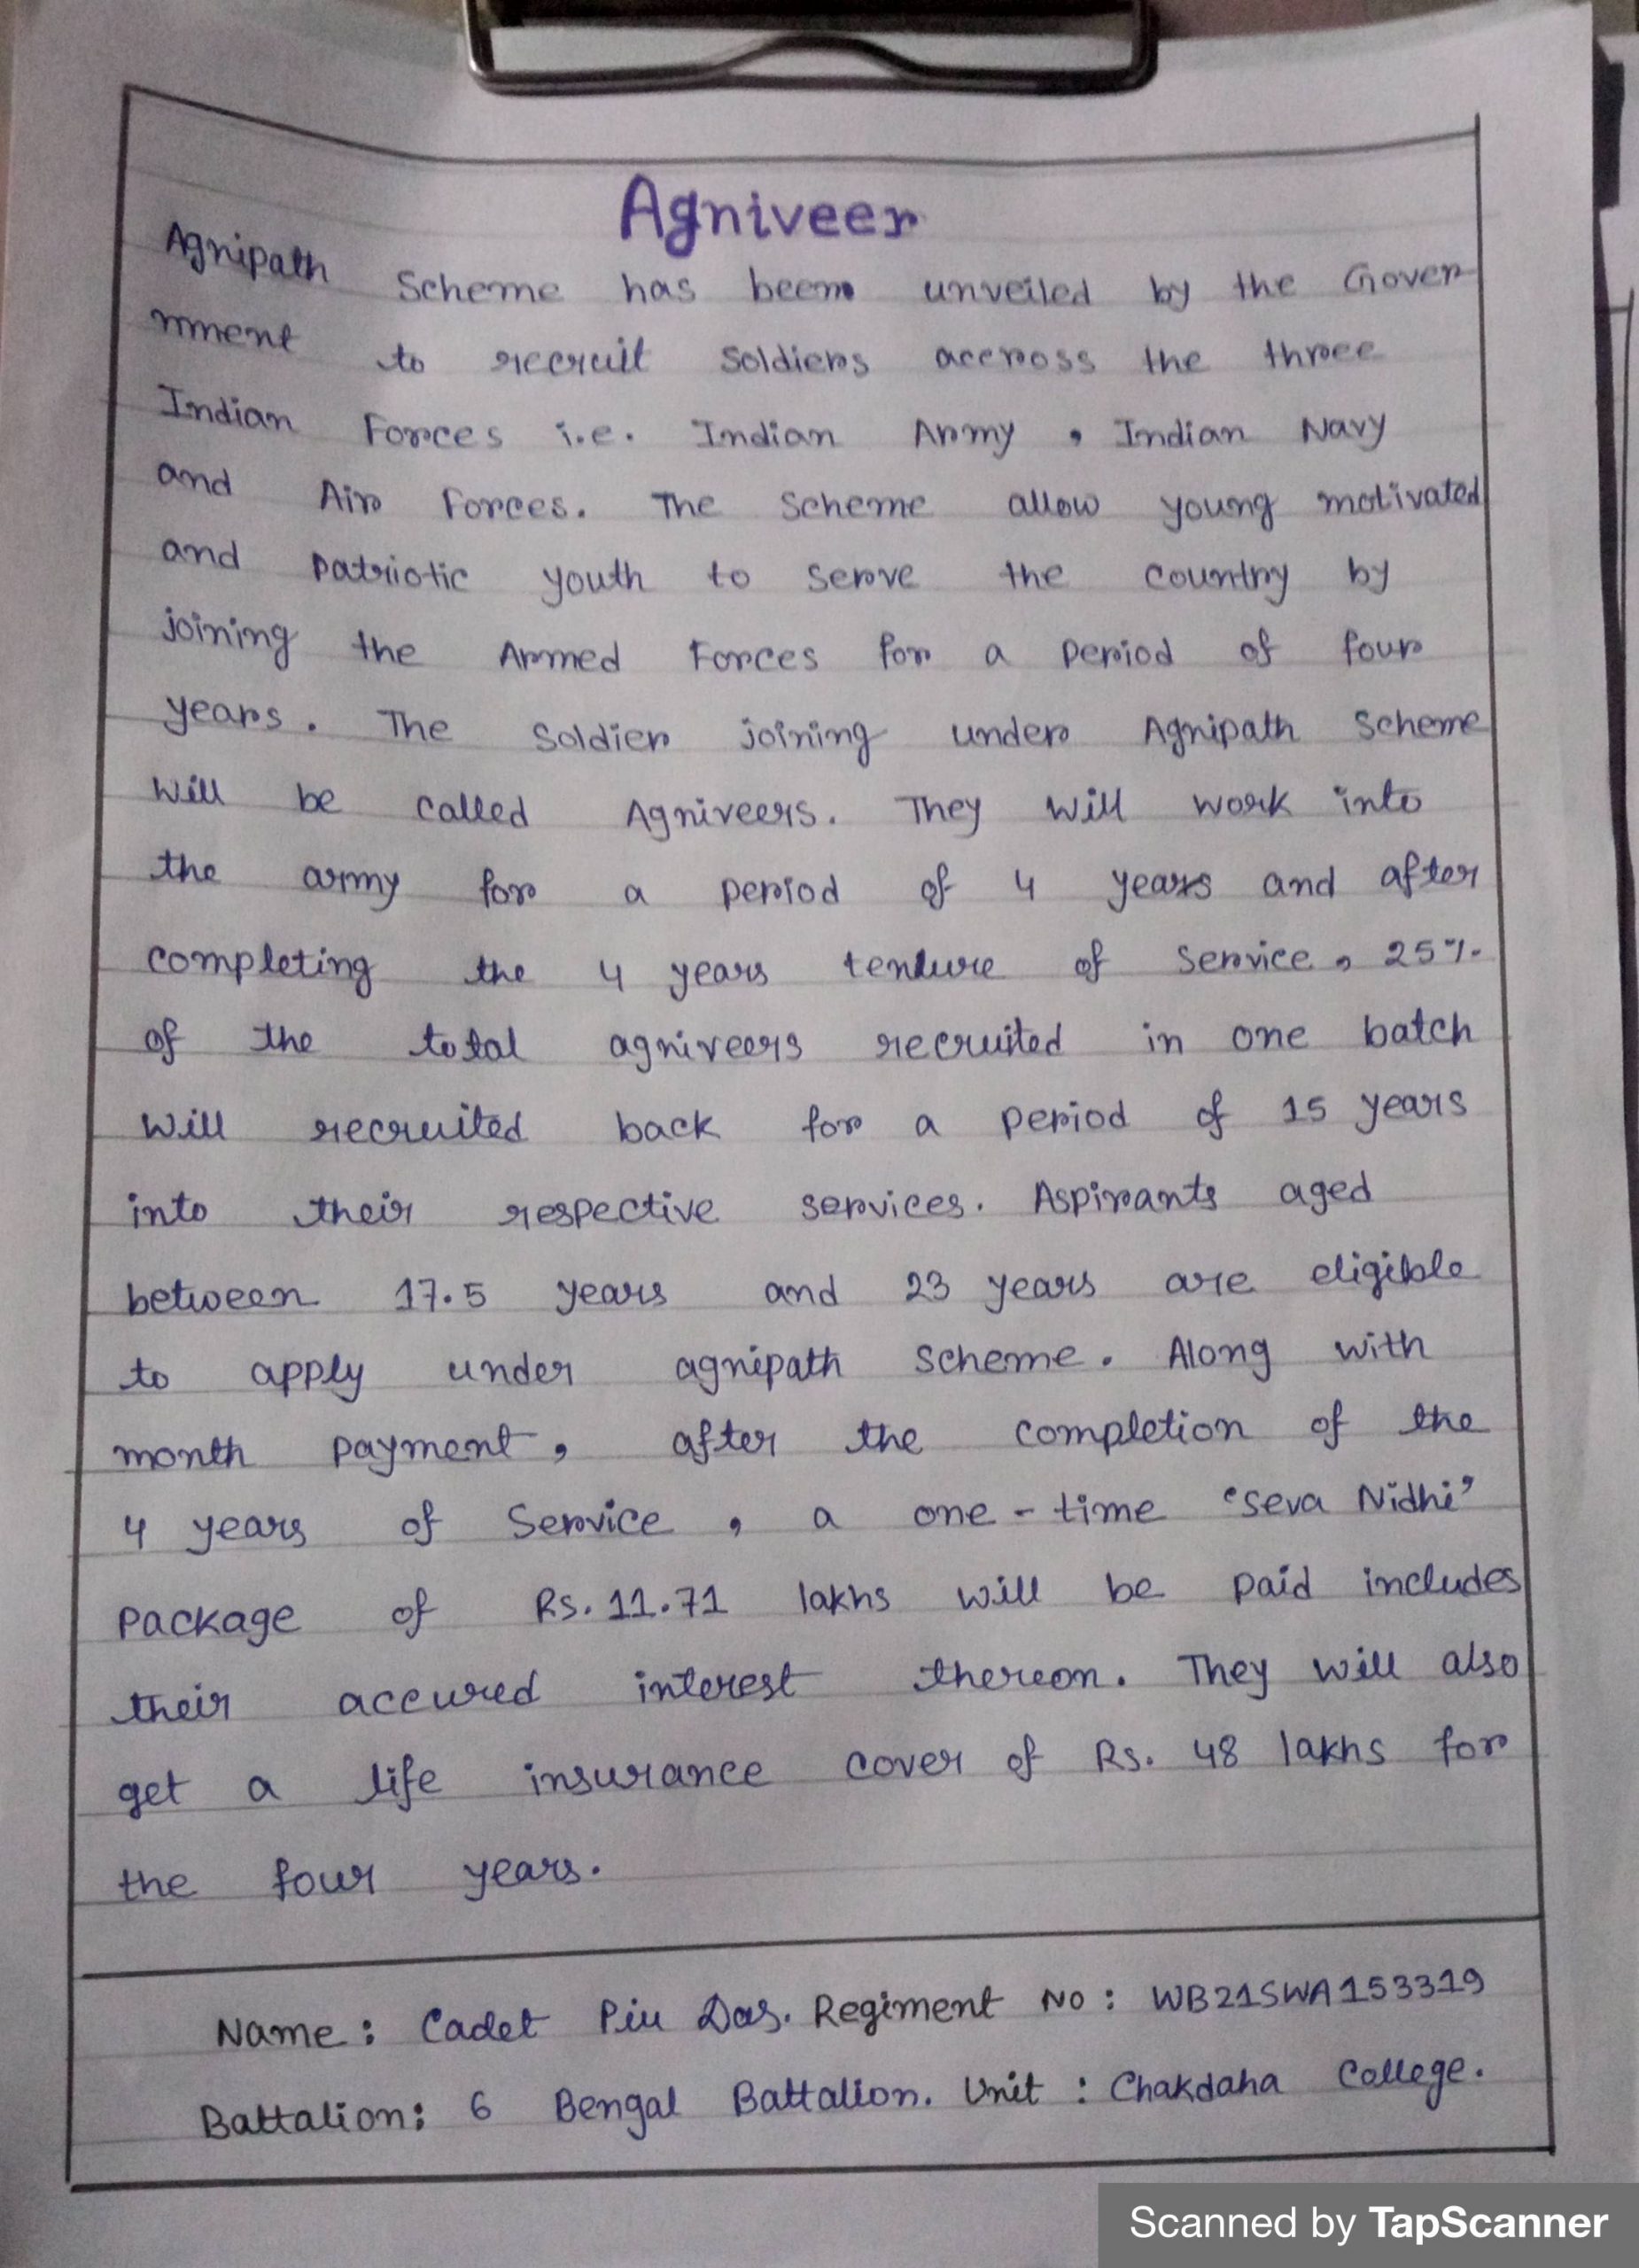 Agniveer
Agnipath Scheme has been unveiled by the Gover-
nment to recruit soldiers accross the three
Indian Forces i.e. Indian Army, Indian Navy
and Air Forces. The scheme allow young motivated
and patriotic youth to serve the country by
joining the Armed Forces for a period of four
years. The soldier joining under Agnipath Scheme
will be called Agniveers. They will work into
the army for a period of 4 years and after
completing the 4 years tenure of service, 25%
of the total agniveers recruited in one batch
will recruited back for a period of 15 years
into their respective services. Aspirants aged
between 17.5 years and 23 years are eligible
to apply under agnipath scheme. Along with
month payment, after the completion of the
4 years of Service, a one-time 'Seva Nidhi'
package of Rs. 11.71 lakhs will be paid includes
their accured interest thereon. They will also
get a life insurance cover of Rs. 48 lakhs for
the four years.
Name: Cadet Piu Das. Regiment No: WB21SWA153319
Battalion: 6 Bengal Battalion. Unit: Chakdaha College.
Scanned by TapScanner